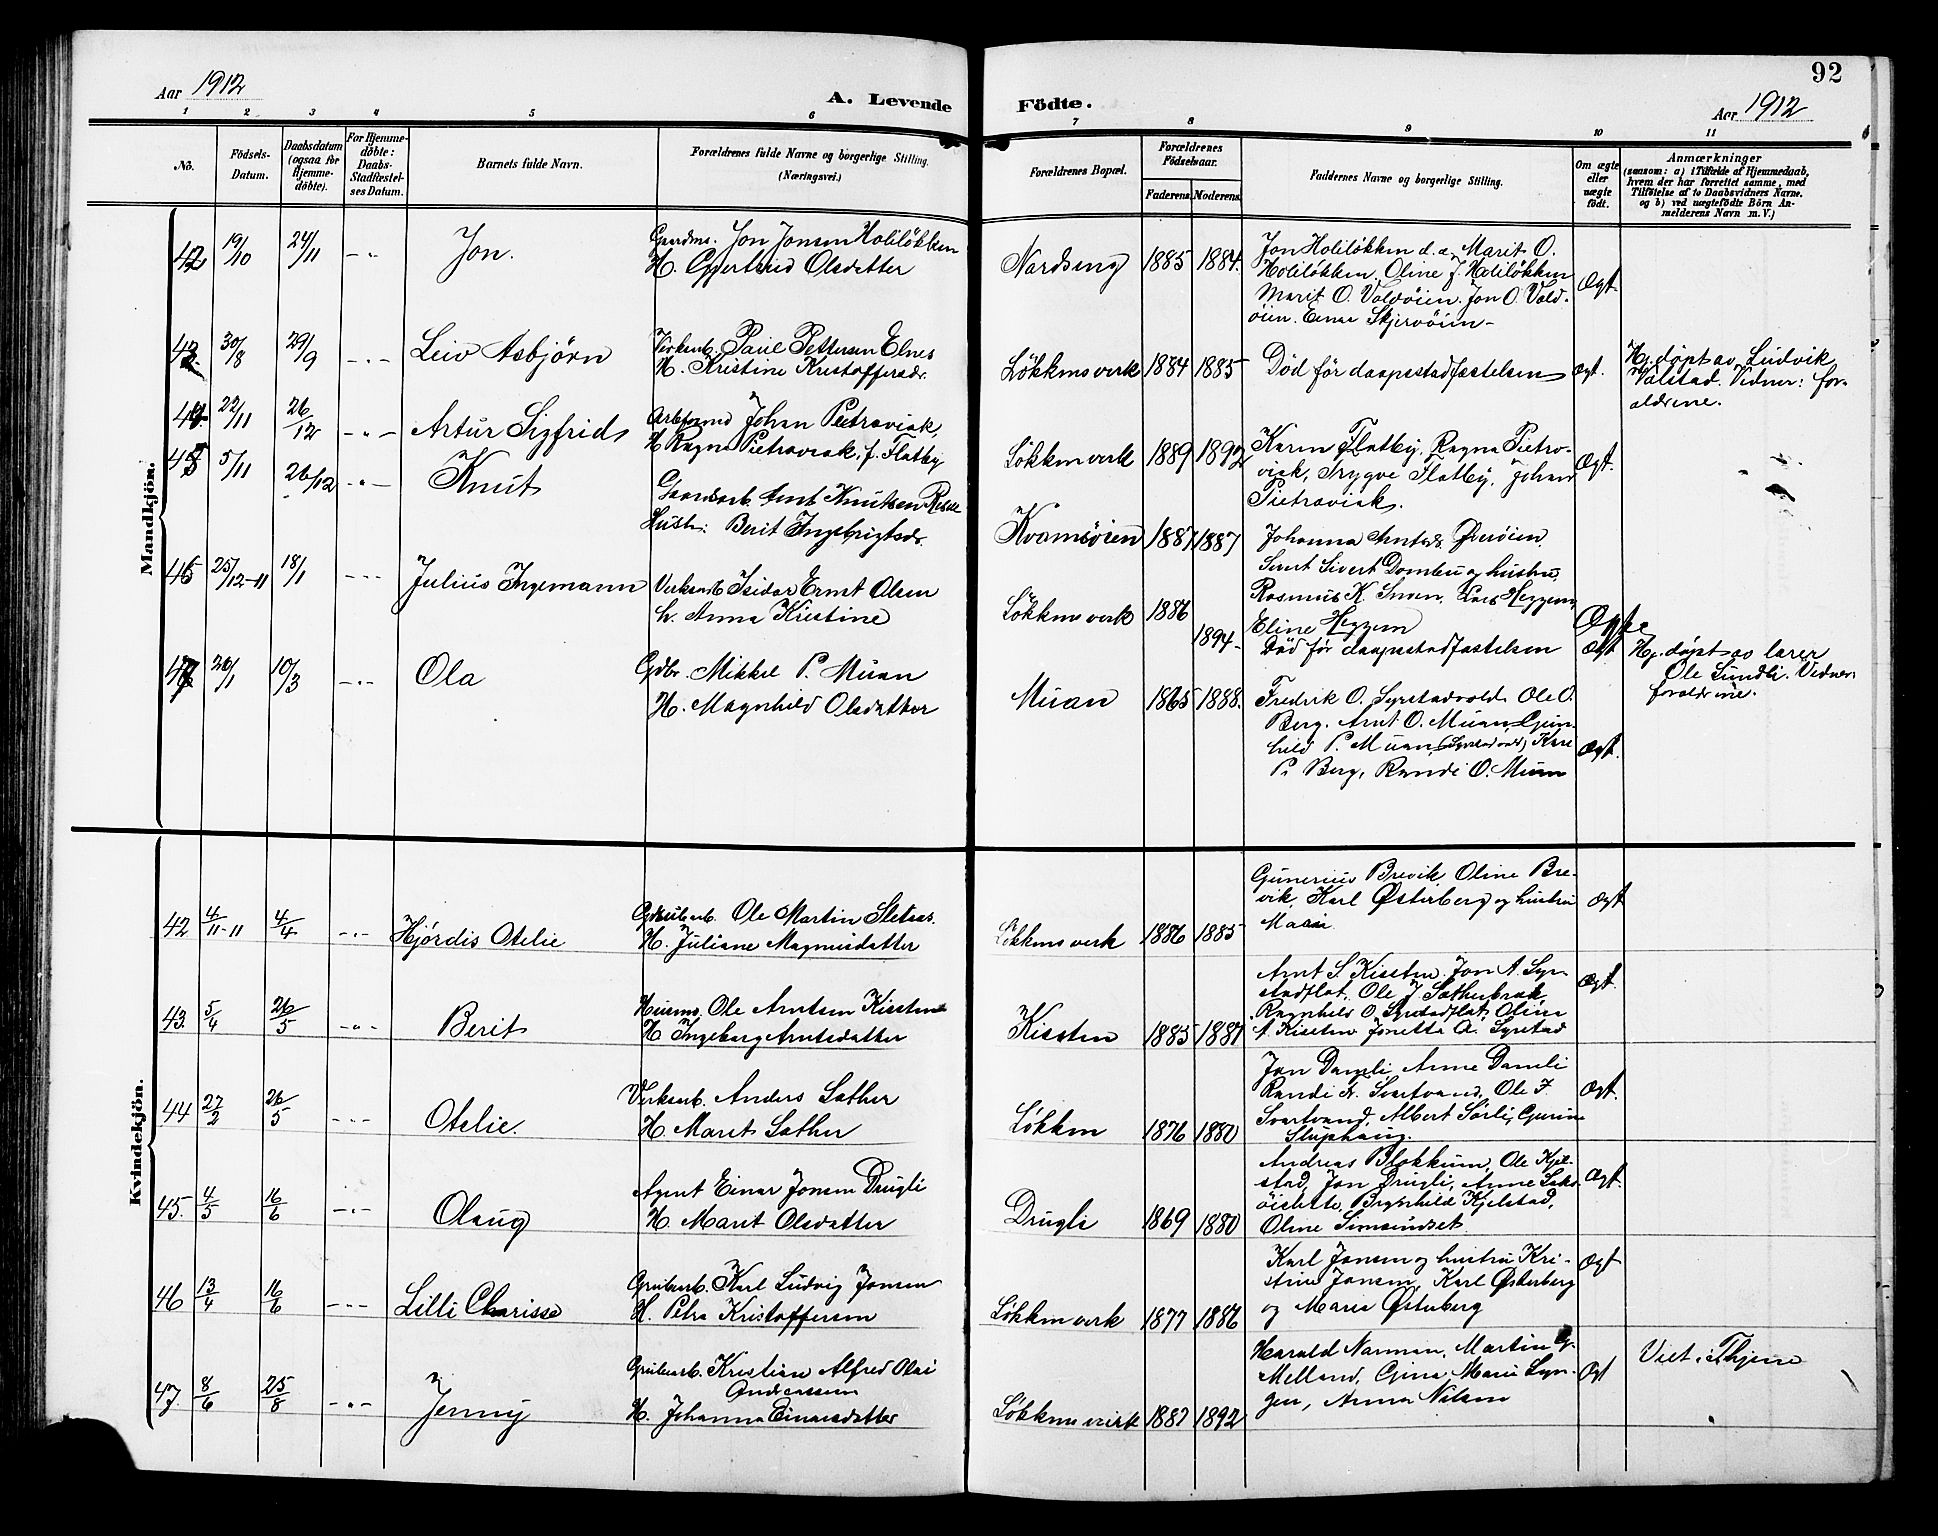 92
Aar 1912
A. Levende Födte.
Aar 1912
1 2 3 4 5 6 7 8 9 10 11
No.
Födsels-Datum.
Daabsdatum (ogsaa for Hjemme-döbte).
For Hjemme-döbte: Daabs-Stadfæstelses Datum.
Barnets fulde Navn.
Forældrenes fulde Navne og borgerlige Stilling.
(Næringsvei.)
Forældrenes Bopæl.
Forældrenes Födselsaar.
Faderens. Moderens.
Faddernes Navne og borgerlige Stilling.
Om ægte eller uægte födt.
Anmærkninger
(saasom: a) i Tilfælde af Hjemmedaab,
hvem der har forrettet samme, med
Tilföielse af to Daabsvidners Navne.
og b) ved uægtefödte Börn An-
melderens Navn m. V.)
Mandkjön.
42 19/10 24/11 - " Jon. Gaardms. Jon Jonsen Holiløkken
H. Gjertrud Olsdatter
Nordseng 1885 1884.
Jon Holiløkken d.æ. Marit O.
Holiløkken. Oline J. Holiløkken
Marit O. Voldøien. Jon O. Vold-
øien. Einar Skjervøien -
Ægt.
43. 30/8 29/9 - " - Leiv Asbjörn Verksarb. Paul Pettersen Elnes
H. Kristine Kristoffersdr.
Løkkens verk 1884 1885
Død før daapsstadfæstelsen
Ægt.
Hj. døpt av Ludvik
Valstad. Vidner: for-
ældrene.
44. 22/11 26/12 - " - Artur Sigfrid Arbformd Johan Pietraviak,
H. Ragna Pietraviak, f. Flatby
Løkken verk 1889 1892
Karen Flatby, Ragna Pietra-
viak, Trygve Flatby, Johan
Pietraviak.
Ægt.
45 5/11 26/12 - " - Knut Gaardsarb. Arnt Knutsen
Hustr: Berit Ingebrigtsdr.
Kvamsøien 1887 1887
Johanna Arntsdr. Øverøien.
Sivert Dombu og hustru,
Rasmus K. Lars Heggem,
Eline Heggem
46 25/12-11 18/1 - " - Julius Ingemann Verksarb Isidor Ernst Olsen
h. Anna Kristine
Løkkens verk 1886
1894-
Død før daapsstadfæstelsen
Ægt
Hj. døpt av lærer
Ole Sundli. Vidner:
forældrene.
47 20/1 10/3 - " - Ola Gdbr. Mikkel P. Muan
H. Magnhild Olsdatter
Muan 1865 1888.
Fredrik O. Syrstadvold. Ole O.
Berg. Arnt O. Muan. Gun-
hild P. Muan (Syrstadvold) Kari
P. Berg, Randi O. Muan
Ægt.
Kvindekjön.
42 4/11-11 4/4 - " - Hjørdis Otelie Ole Martin Sletaas.
H. Juliane Magnusdatter
Løkkens verk 1886 1885
Gunerius Brevik, Oline Bre-
vik, Karl Østerberg og hustru
Maria
Ægt
43. 5/4 26/5 - " - Berit Husms. Ole Arntsen Kissten
H. Ingeborg Arntsdatter
Kissten 1885 1887
Arnt S. Kissten. Jon A. Syr-
stadflat, Ole J. Sætherbrak,
Ragnhild O. Syrstadflat, Oline
A. Kissten Jonetta A. Syrstad
Ægt.
44 27/2 26/5 - " - Otelie. Verksarb. Anders Sæther
H. Marit Sæther
Løkken 1876 1880
Jon Damli, Anne Damli
Randi F. Svartvand, Ole F.
Svartvand, Albert Sørli, Gurine
Sluphaug.
Ægt.
45. 4/5 16/6 - " - Olaug Agent Einar Jonsen Drugli
H. Marit Olsdatter
Drugli 1869 1880
Andreas Blokkum, Ole Kjel-
stad, Jon Drugli, Anne
Brynhild Kjelstad,
Oline Simsundset.
Ægt.
46 13/4 16/6 - " - Lilli Charisse Grubearb. Karl Ludvig Jonsen
H. Petra Kristoffersen
Løkken verk 1877 1886
Karl Jonsen og hustru Kri-
stine Jonsen, Karl Østerberg
og Maria Østerberg
Ægt
47. 8/6 25/8 - " - Jenny Grubearb. Kristian Alfred Olai
Andreassen
H. Johanna Einarsdatter
Løkkens verk 1887 1892
Harald Narman, Martin G.
Melland, Gina Marie Lyn-
gen, Anna Nilsen
Ægt
Viet i Thjem